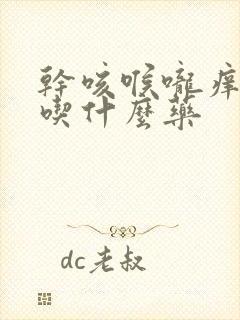 幹咳喉嚨癢
喫什麼藥
dc老叔